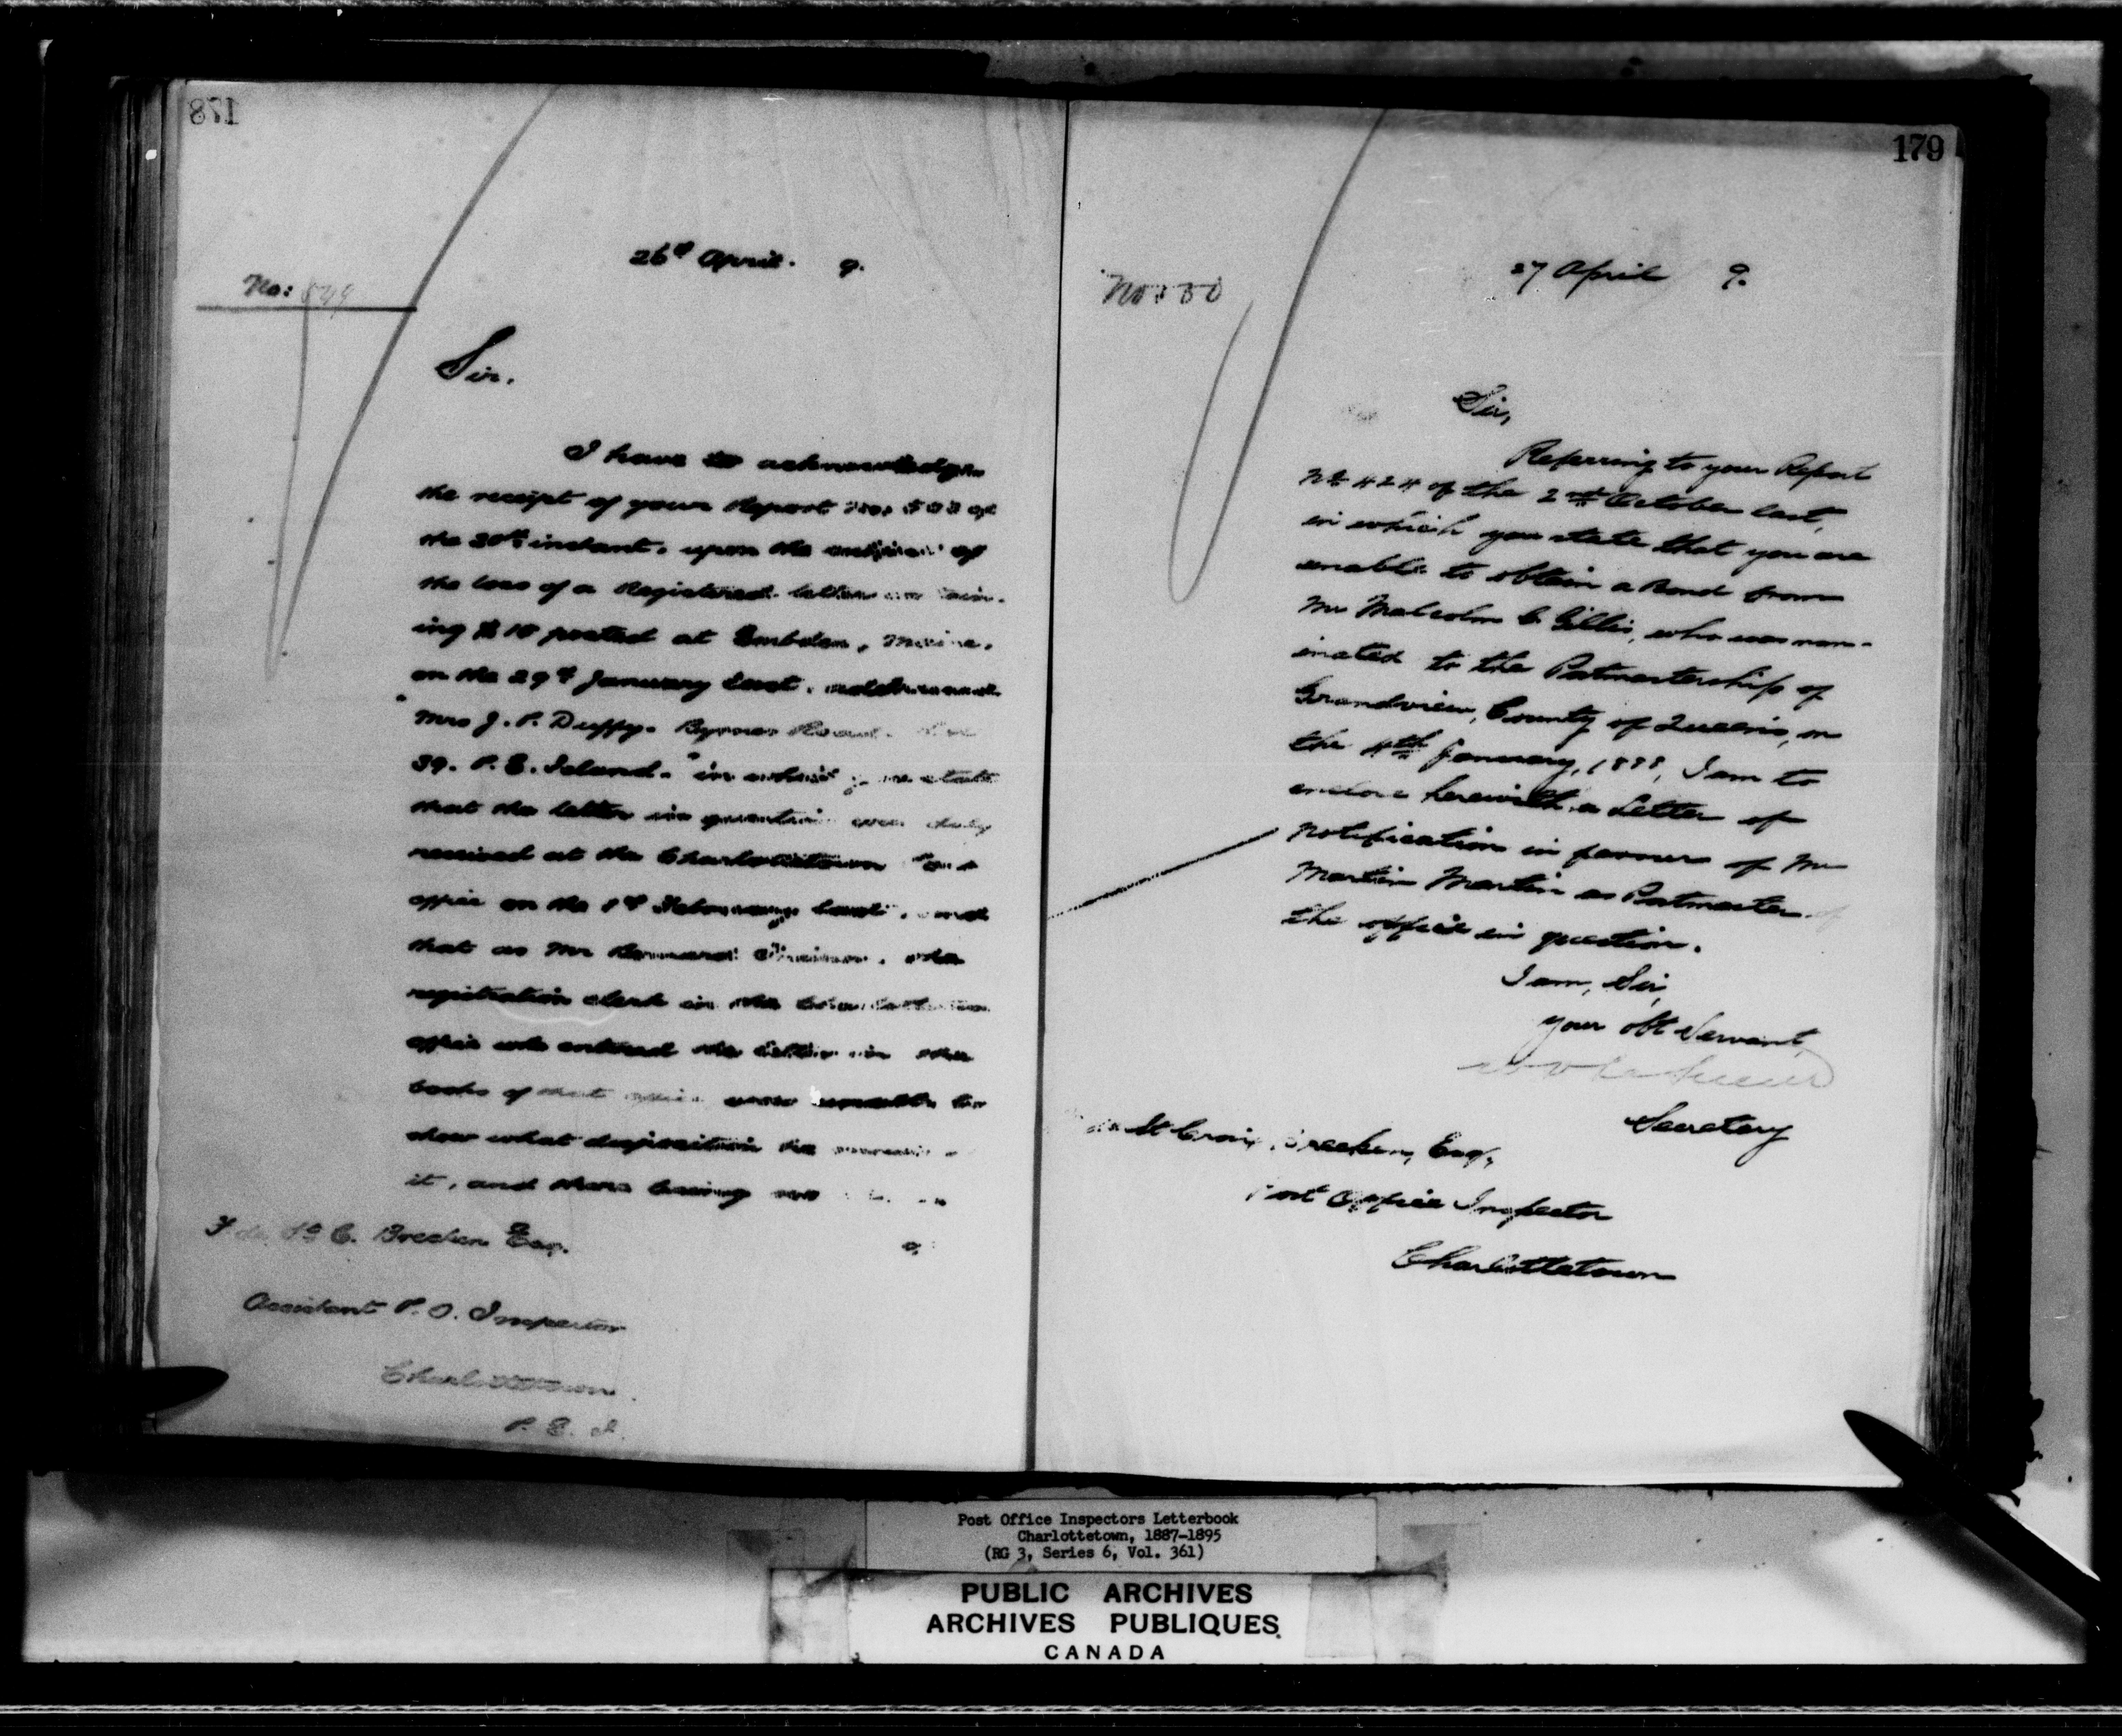 178
26th April. 9.
No:
Sir.
I have to acknowledge
the receipt of your Report No: of
the 20th instant, upon the subject of
the loss of a Registered letter contain-
ing $10 posted at Embden, Maine,
on the 29th January last, addressed
"Mrs J. P. Duffy. Byrnes Road. Lot
39. P. E. Island." in which you state
that the letter in question was duly
received at the Charlottetown Post
office on the 1st February last, and
that as Mr the
registration clerk in the Charlottetown
office who entered the letter in the
books of that office was unable to
show what disposition he made of
it, and there being no
St C. Brecken Esq.
Assistant P. O. Inspector
Charlottetown.
P. E. I.
179
27 April 9.
No:
Sir,
Referring to your Report
No 424 of the 2nd October last,
in which you state that you are
unable to obtain a Bond from
Mr Malcolm C. Gillis, who was nom-
inated to the Postmastership of
Grandview, County of Queens, on
the 4th January, 1888, I am to
enclose herewith a Letter of
notification in favour of Mr
Martin Martin as Postmaster of
the office in question.
I am, Sir,
your obt Servant,
Secretary
de St Croix Brecken, Esq,
Post Office Inspector
Charlottetown
Post Office Inspectors Letterbook
Charlottetown, 1887-1895
(RG 3, Series 6, Vol. 361)
PUBLIC ARCHIVES
ARCHIVES PUBLIQUES
CANADA